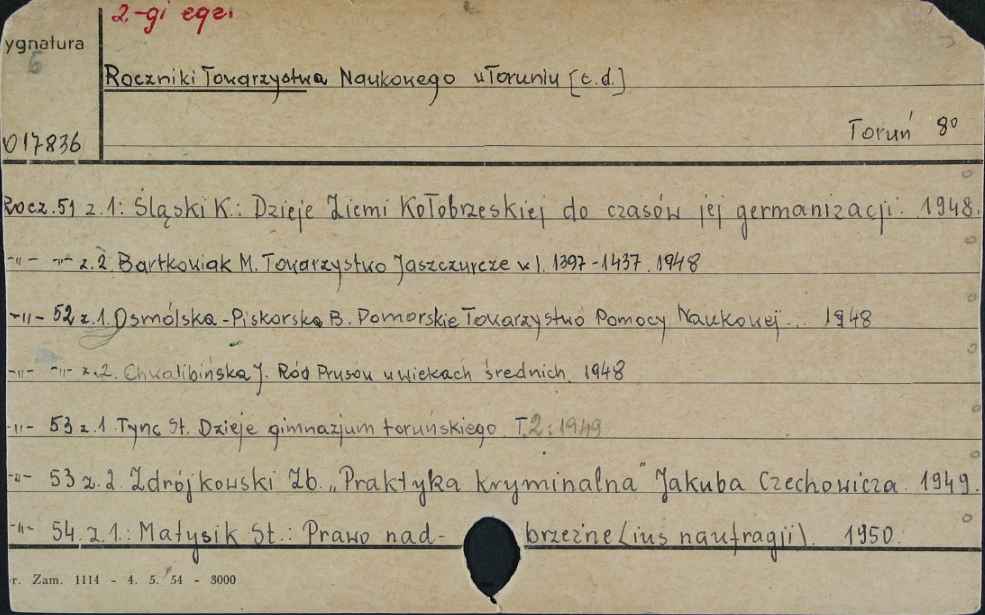 2-gi egz.
ygnatura
6
Roczniki Towarzystwa Naukowego w Toruniu [c.d.]
017836
Toruń 8°
Rocz. 51 z. 1: Śląski K.: Dzieje Ziemi Kołobrzeskiej do czasów jej germanizacji. 1948.
-"- -"- z. 2. Bartkowiak M. Towarzystwo Jaszczurcze w l. 1397-1437. 1948
-"- 52 z. 1. Osmólska-Piskorska B. Pomorskie Towarzystwo Pomocy Naukowej... 1948
-"- -"- z. 2. Chwalibińska J. Ród Prusów w wiekach średnich. 1948
-"- 53 z. 1. Tync St. Dzieje gimnazjum toruńskiego T. 2: 1949
-"- 53 z. 2. Zdrójkowski Zb. „Praktyka kryminalna" Jakuba Czechowicza. 1949.
-"- 54. z. 1.: Matysik St.: Prawo nad- brzeżne (ius naufragii). 1950.
r. Zam. 1114 - 4. 5. 54 - 3000